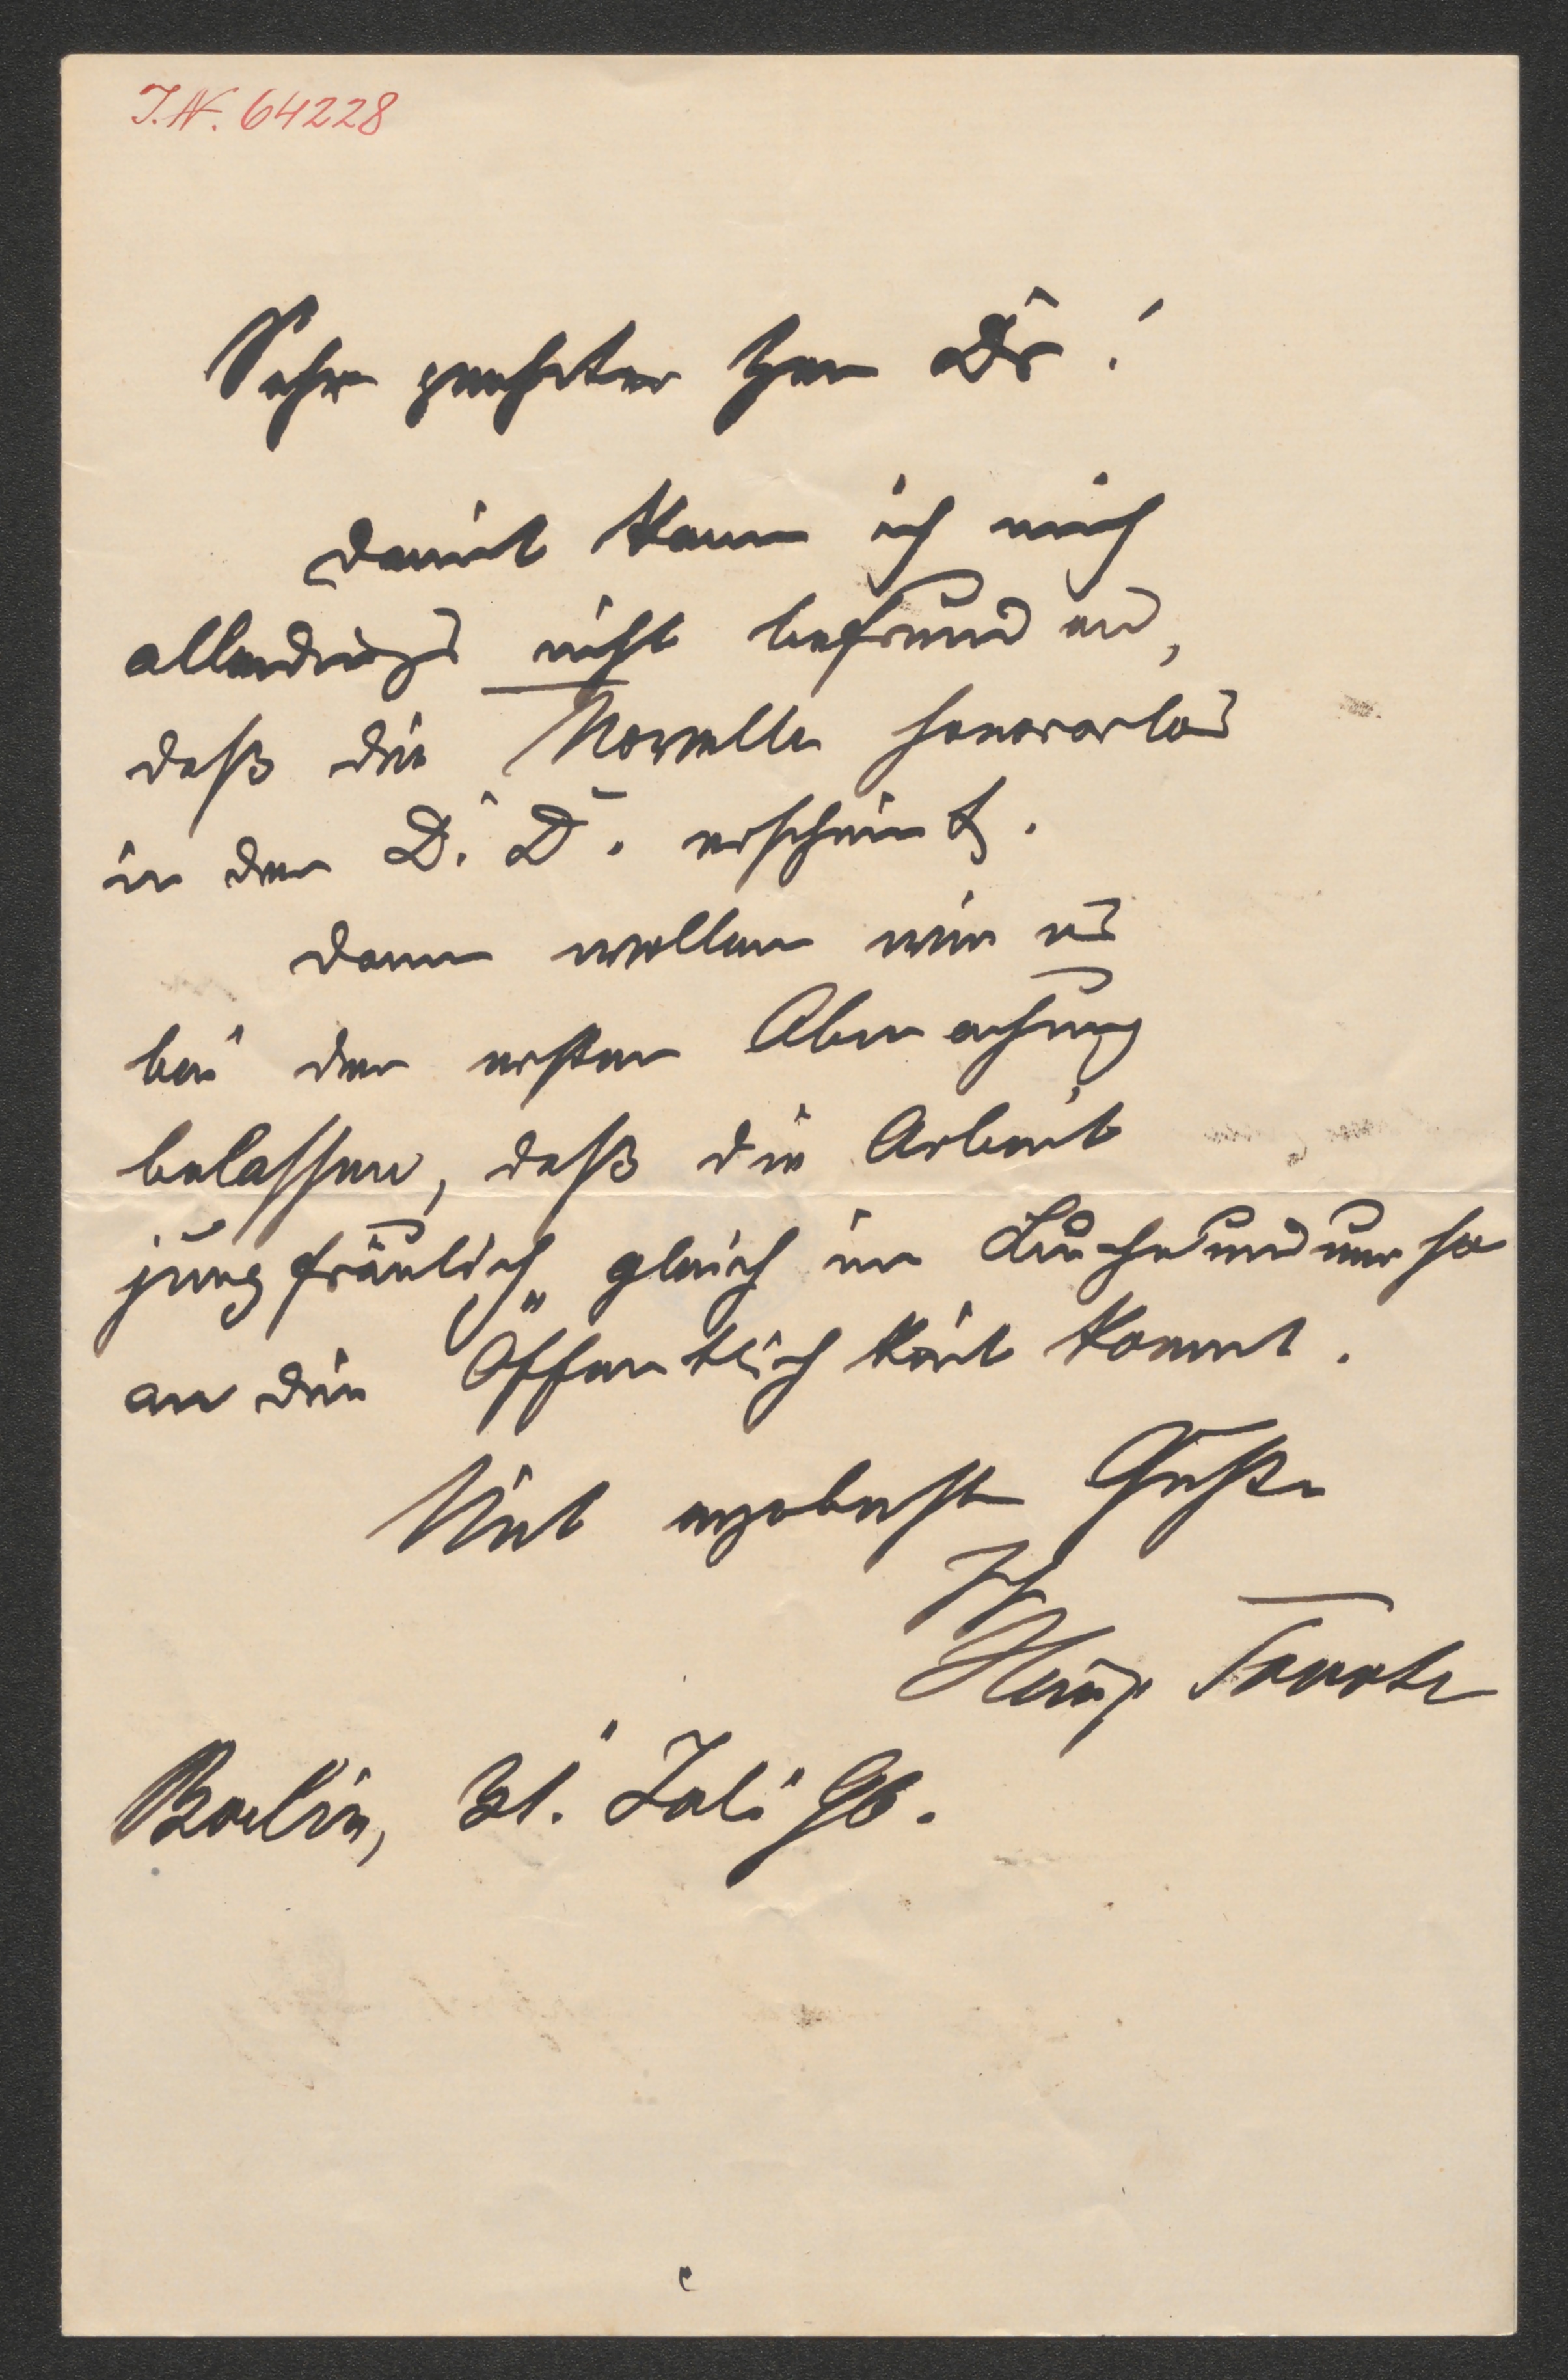 I.N. 64228
Sehr geehrter Herr Dr!
damit kann ich mich
allerdings nicht befreunden,
daß die Novelle honorarlos
in der D. D. erscheint.
dann wollen wir es
bei der ersten Abmachung
belassen, daß die Arbeit
jungfräulich gleich im
an die Öffentlichkeit kommt.
Mit ergebenst Gruße
Heinz Tovote
Berlin, 31. Juli 96.